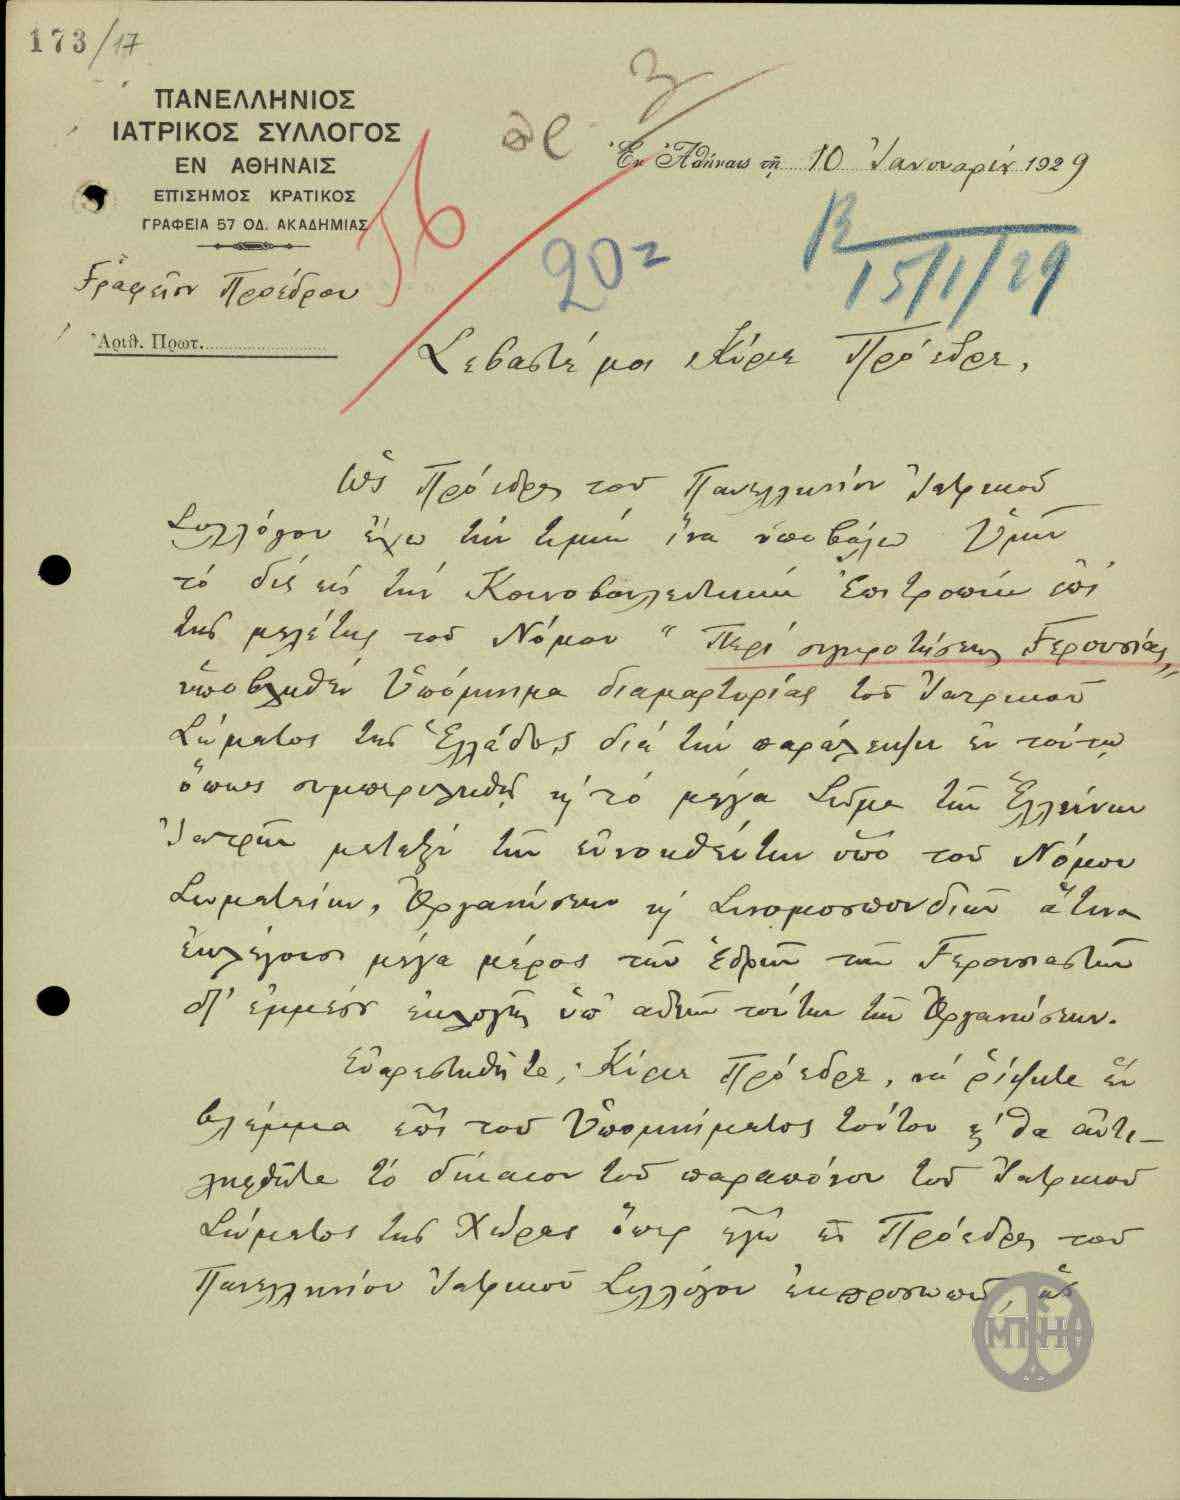 173/17
ΠΑΝΕΛΛΗΝΙΟΣ
ΙΑΤΡΙΚΟΣ ΣΥΛΛΟΓΟΣ
ΕΝ ΑΘΗΝΑΙΣ
ΕΠΙΣΗΜΟΣ ΚΡΑΤΙΚΟΣ
ΓΡΑΦΕΙΑ 57 ΟΔ. ΑΚΑΔΗΜΙΑΣ
Γραφεῖον Προέδρου
Ἀριθ. Πρωτ.
56
Ἐν Ἀθήναις τῇ 10 Ἰανουαρίου 1929
202
15/1/29
Σεβαστέ μοι Κύριε Πρόεδρε,
Ὡς Πρόεδρος τοῦ Πανελληνίου Ἰατρικοῦ
Συλλόγου ἔχω τὴν τιμὴν ἵνα ὑποβάλω Ὑμῖν
τὸ διὰ εἰς τὴν Κοινοβουλευτικὴν Ἐπιτροπὴν ἐπὶ
τῆς μελέτης τοῦ Νόμου "Περὶ συγκροτήσεως Γερουσίας"
ὑποβληθὲν Ὑπόμνημα διαμαρτυρίας τοῦ Ἰατρικοῦ
Σώματος τῆς Ἑλλάδος διὰ τὴν παράλειψιν ἐν τούτῳ
ὅπως συμπεριληφθῇ κ τὸ μέγα Σῶμα τῶν Ἑλλήνων
Ἰατρῶν μεταξὺ τῶν εὐνοηθέντων ὑπὸ τοῦ Νόμου
Σωματείων, Ὀργανώσεων κ Συνομοσπονδιῶν ἅτινα
ἐκλέγουσι μέγα μέρος τῶν ἑδρῶν τῶν Γερουσιαστῶν
δι' ἐμμέσου ἐκλογῆς ὑπ' αὐτῶν τούτων τῶν Ὀργανώσεων.
Εὐαρεστηθῆτε, Κύριε Πρόεδρε, νὰ ρίψητε ἓν
βλέμμα ἐπὶ τοῦ Ὑπομνήματος τούτου κ θὰ ἀντι-
ληφθῆτε τὸ δίκαιον τοῦ παραπόνου τοῦ Ἰατρικοῦ
Σώματος τῆς Χώρας ὅπερ ἐγὼ ὡς Πρόεδρος τοῦ
Πανελληνίου Ἰατρικοῦ Συλλόγου ἐκπροσωπῶ,